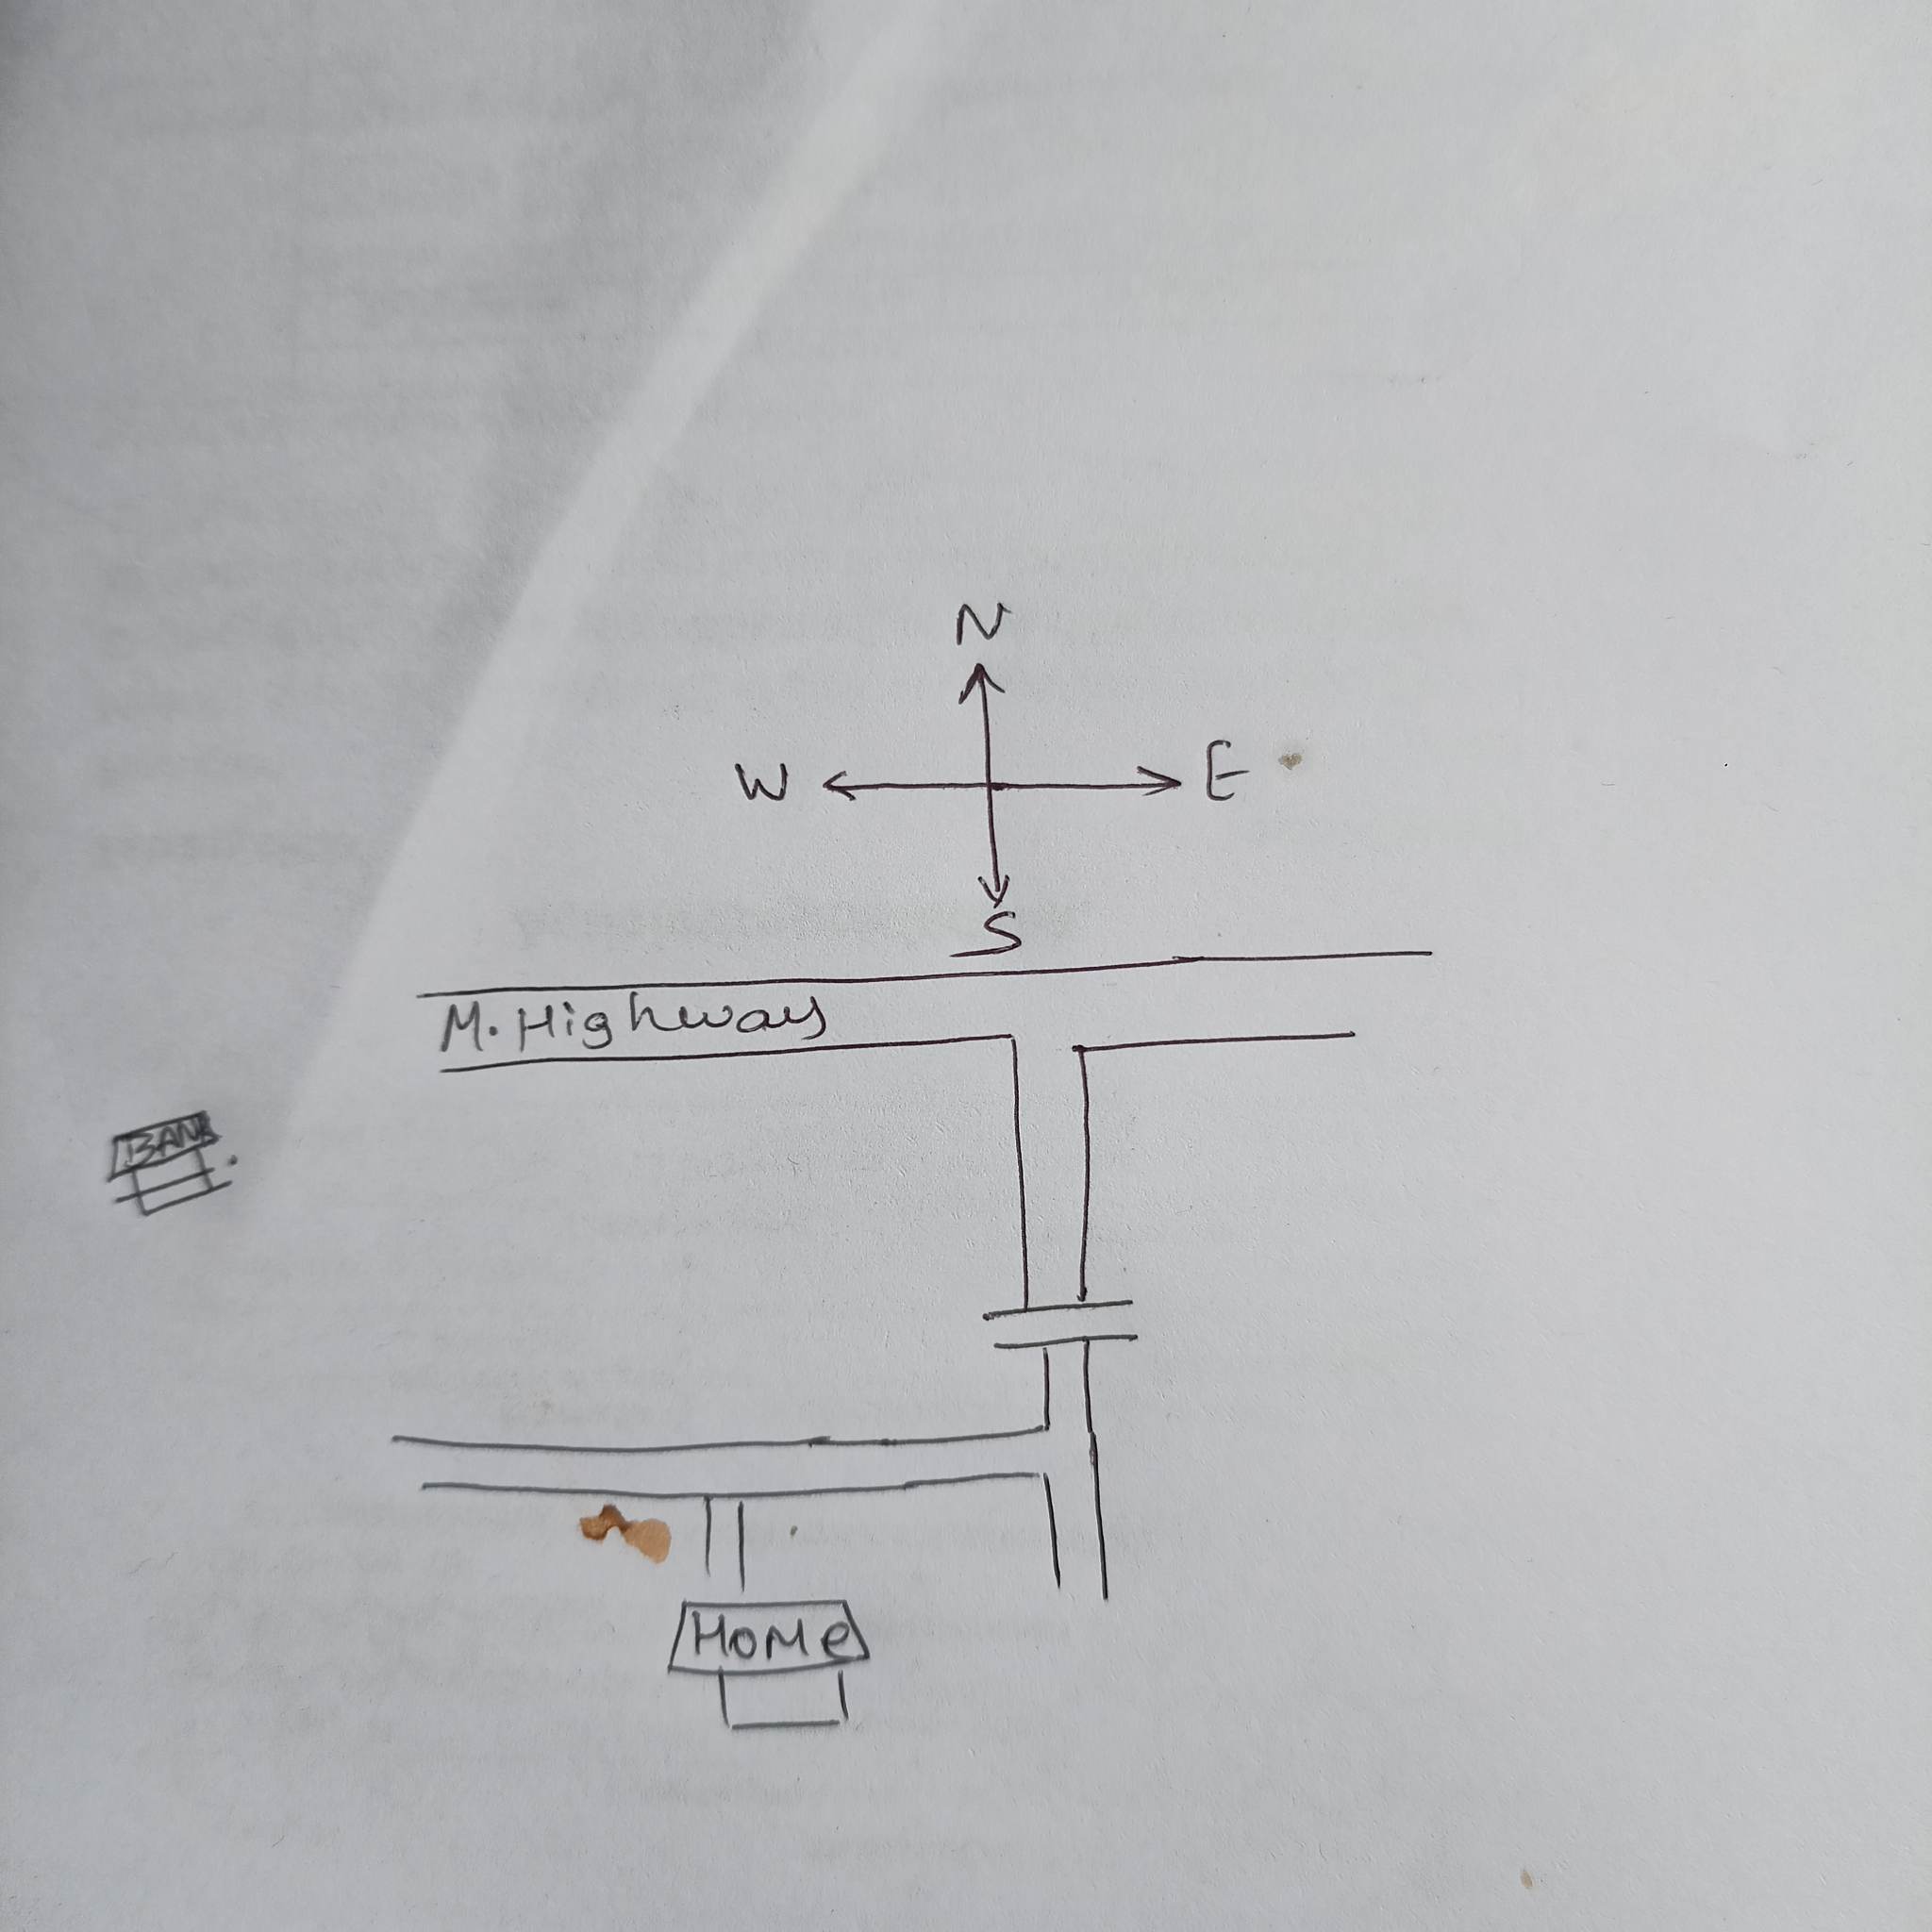 N
W E
S
M. Highway
BANK
HOMe